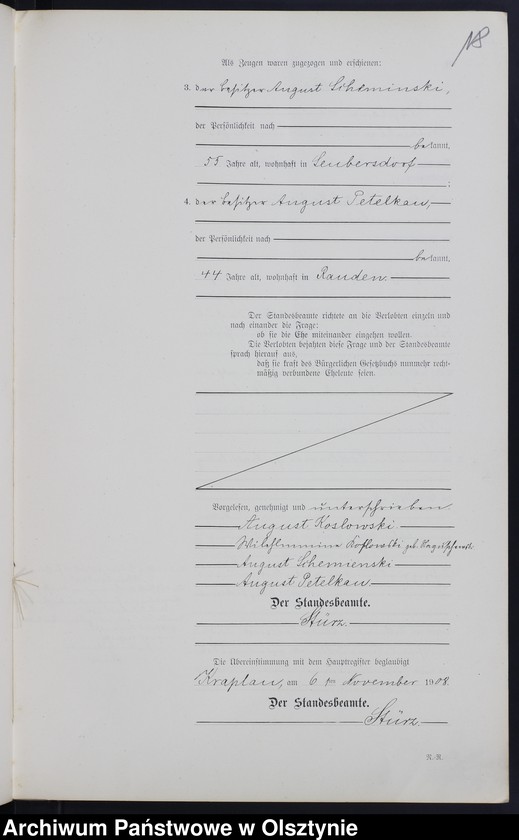 118
Als Zeugen waren zugezogen und erschienen:
3. der Besitzer August Scheminski,
der Persönlichkeit nach
bekannt,
55 Jahre alt, wohnhaft in Leubersdorf
;
4. der Besitzer August Petelkau,
der Persönlichkeit nach
bekannt,
44 Jahre alt, wohnhaft in Rauden.
Der Standesbeamte richtete an die Verlobten einzeln und
nach einander die Frage:
ob sie die Ehe miteinander eingehen wollen.
Die Verlobten bejahten diese Frage und der Standesbeamte
sprach hierauf aus,
daß sie kraft des Bürgerlichen Gesetzbuchs nunmehr recht-
mäßig verbundene Eheleute seien.
Vorgelesen, genehmigt und unterschrieben.
August Koslowski
Wilhelmine Koslowski geb.
August Schemienski
August Petelkau
Der Standesbeamte.
Stürz.
Die Übereinstimmung mit dem Hauptregister beglaubigt
Kraplau, am 6 ten November 1908.
Der Standesbeamte.
Stürz
R.-R.
Archiwum Państwowe w Olsztynie